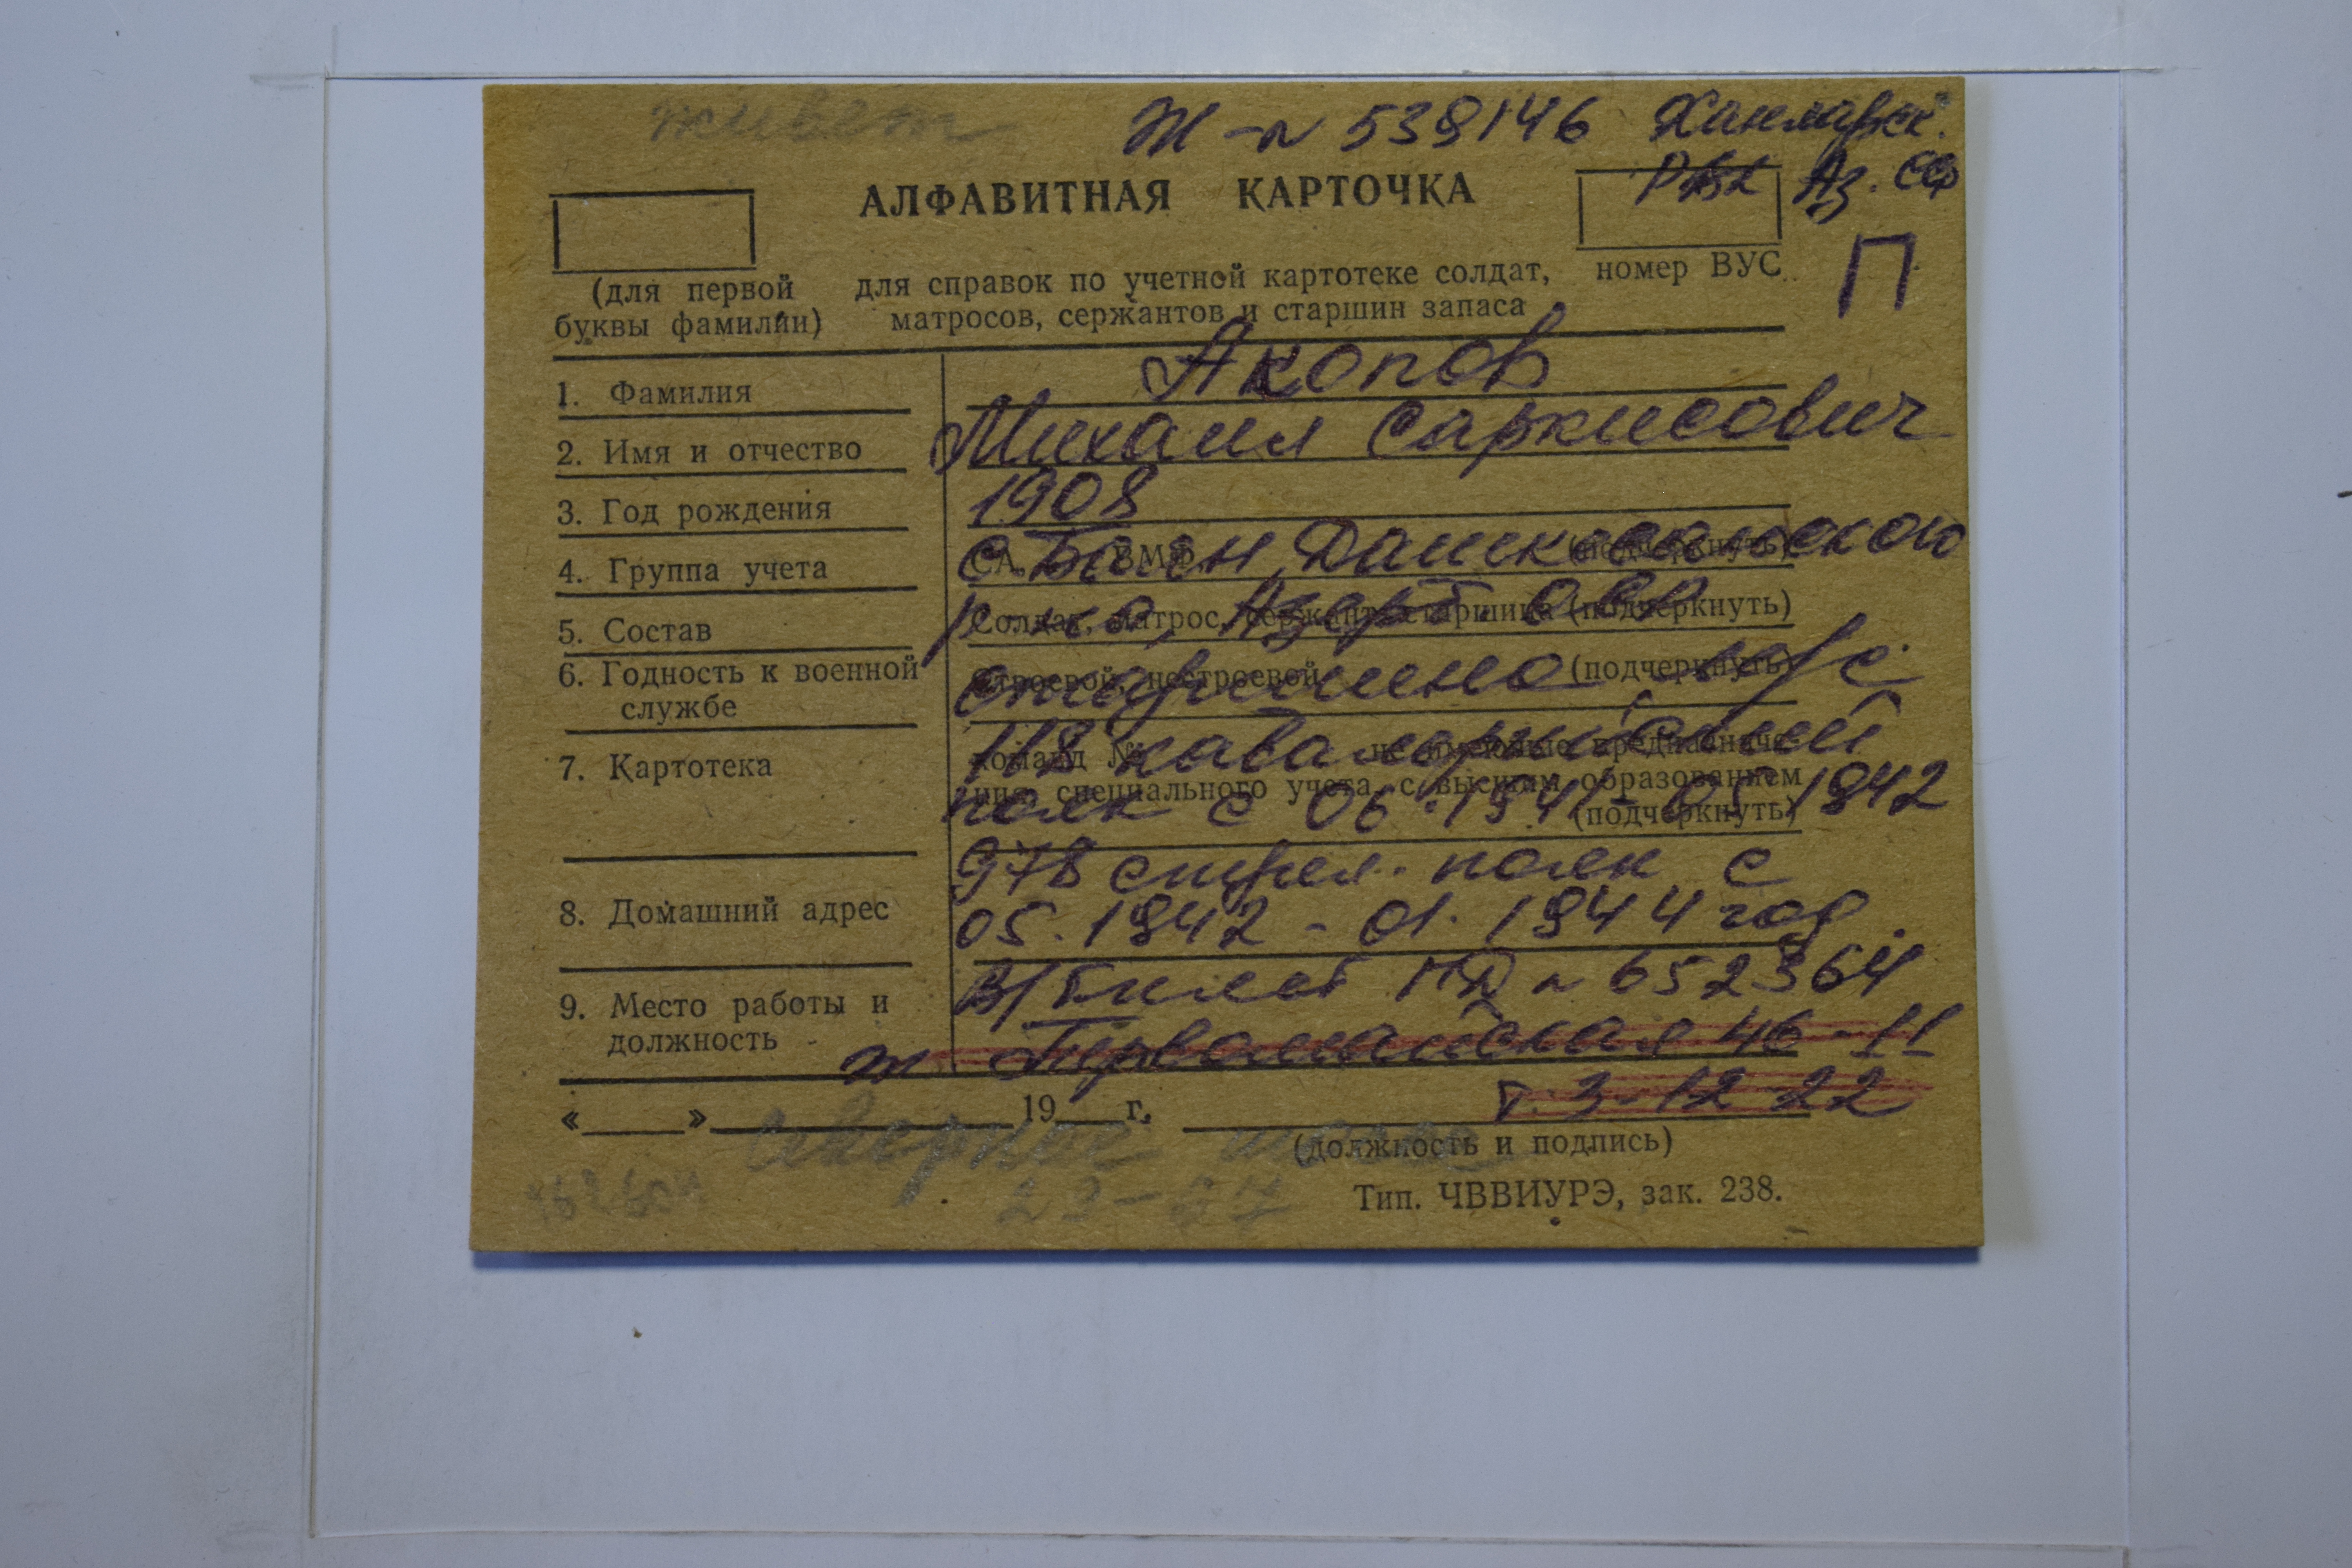 живет
Ж - № 539146 Ханларск.
РВК Аз. ССР
АЛФАВИТНАЯ КАРТОЧКА
П
(для первой буквы фамилии)
для справок по учетной картотеке солдат,
матросов, сержантов и старшин запаса
номер ВУС
1. Фамилия Акопов
2. Имя и отчество Михаил Саркисович
3. Год рождения 1908
4. Группа учета СА, ВМФ (подчеркнуть)
с. Баян, Дашкесанского
5. Состав Солдат, матрос, сержант, старшина (подчеркнуть)
р-на, Азерб. ССР
6. Годность к военной службе строевой, нестроевой (подчеркнуть)
старшина, м/с
7. Картотека команд № не имеющие предназначе-
ния, специального учета, с высшим образованием
(подчеркнуть)
118 кавалерийский
полк с 06. 1941 - 05 1942
978 стрел. полк с
8. Домашний адрес
05. 1942 - 01. 1944 год.
В/билет НД № 652364
9. Место работы и должность
ж Первомайская 46-11
т. 3-12-22
« » 19 г.
Северное
(должность и подпись)
Тип. ЧВВИУРЭ, зак. 238.